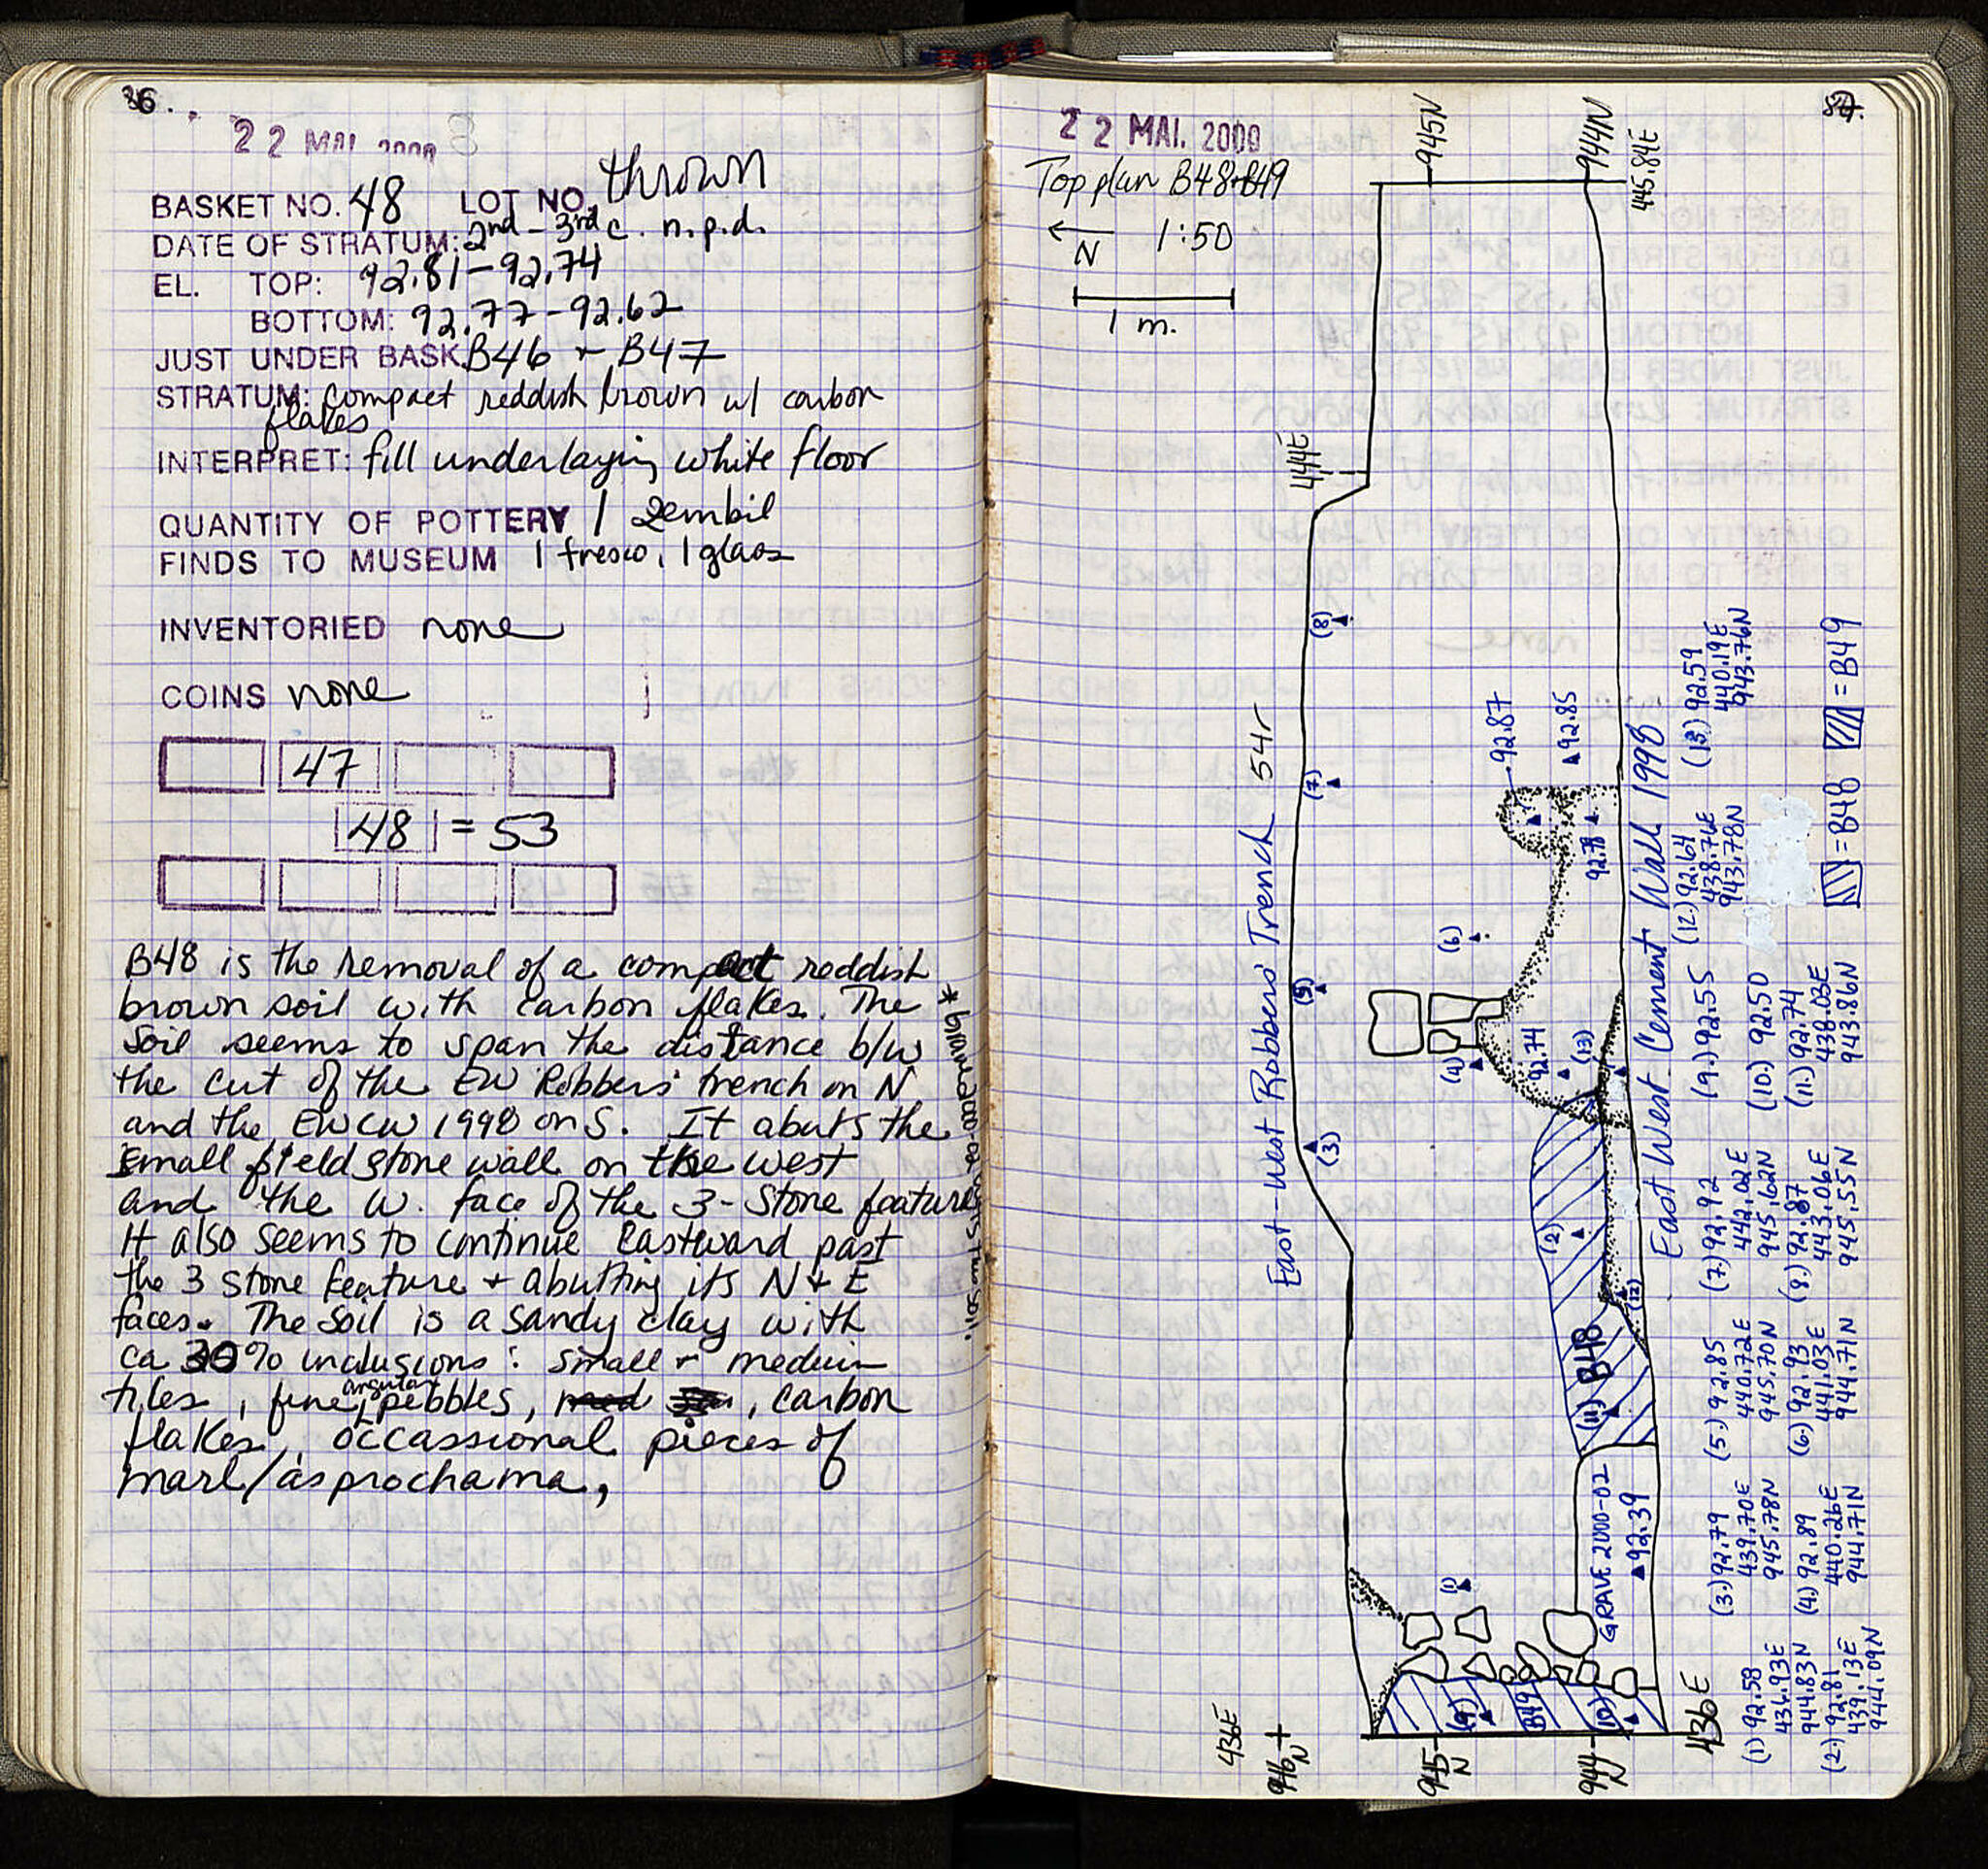 86.
22 MAI 2000
BASKET NO. 48 LOT NO. thrown
DATE OF STRATUM: 2nd - 3rd c. n.p.d.
EL. TOP: 92.81-92.74
BOTTOM: 92.77-92.62
JUST UNDER BASK. B46 + B47
STRATUM: compact reddish brown w/ carbon
flakes
INTERPRET: fill underlaying white floor
QUANTITY OF POTTERY 1 zembil
FINDS TO MUSEUM 1 fresco, 1 glass
INVENTORIED none
COINS none
47
48 = 53
B48 is the removal of a compact reddish
brown soil with carbon flakes. The *
soil seems to span the distance b/w
the cut of the EW Robbers' trench on N
and the EWCW 1998 on S. It abuts the
small fieldstone wall on the west
and the W. face of the 3-Stone feature
It also seems to continue Eastward past
the 3 stone feature + abutting its N + E
faces. The soil is a sandy clay with
ca 30% inclusions: small + medium
tiles, fine angular pebbles, carbon
flakes, occassional pieces of
marl/asprochama,
* grave 2000-02 cuts this soil.
87.
22 MAI. 2000
Top plan B48+B49
N 1:50
1 m.
945N
944N
445.84E
444E
East-West Robbers' Trench 54r
(8)
(7)
(5)
(3)
(6)
(4)
92.87
92.85
92.78
92.74
(13)
(2)
(12)
(11) B48
GRAVE 2000-02
92.39
(1)
(9)
B49
(10)
East West Cement Wall 1998
436E
946N
945N
944N
436E
(1) 92.58
436.93E
944.83N
(2.) 92.81
439.13E
944.09N
(3.) 92.79
439.70E
945.78N
(4.) 92.89
440.26E
944.71N
(5.) 92.85
440.72E
945.70N
(6.) 92.93
441.03E
944.71N
(7.) 92.92
442.02E
945.62N
(8.) 92.87
443.06E
945.55N
(9.) 92.55
(10.) 92.50
(11.) 92.74
438.03E
943.86N
(12.) 92.64
438.76E
943.78N
(13.) 92.59
440.19E
943.76N
= B48 = B49